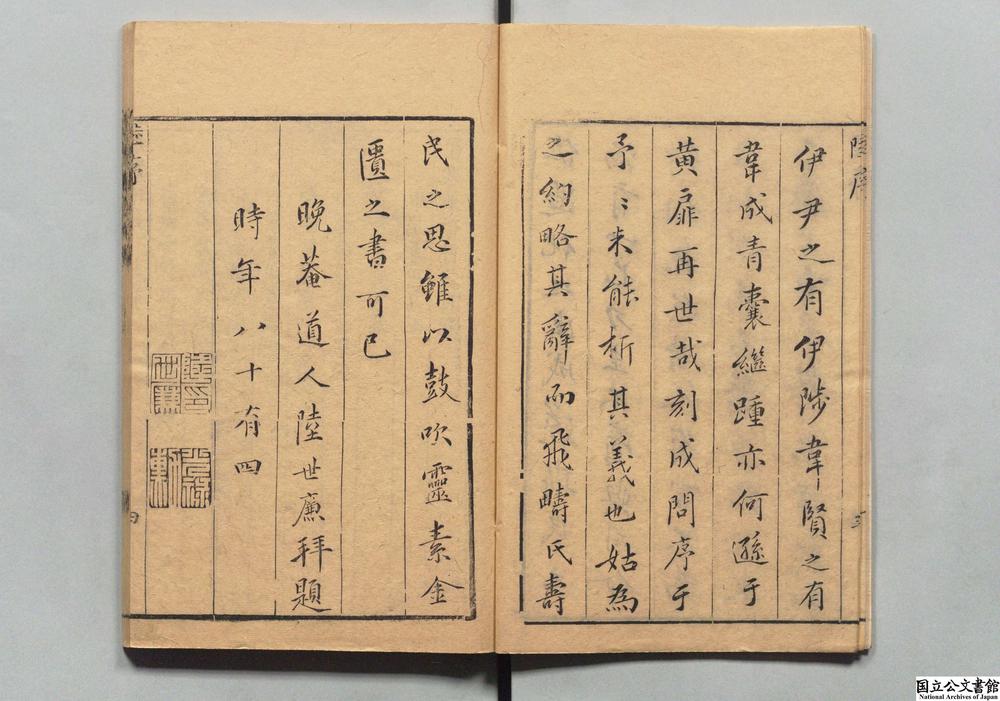 陸序
伊尹之有伊陟韋賢之有
韋成青囊繼踵亦何遜于
黃扉再世哉刻成問序于
予〻未能析其義也姑為
之約略其辭而飛疇氏壽
三
民之思雖以鼓吹靈素金
匱之書可已
晚菴道人陸世廉拜題
時年八十有四
陸序
四
陸印世廉
国立公文書館
National Archives of Japan